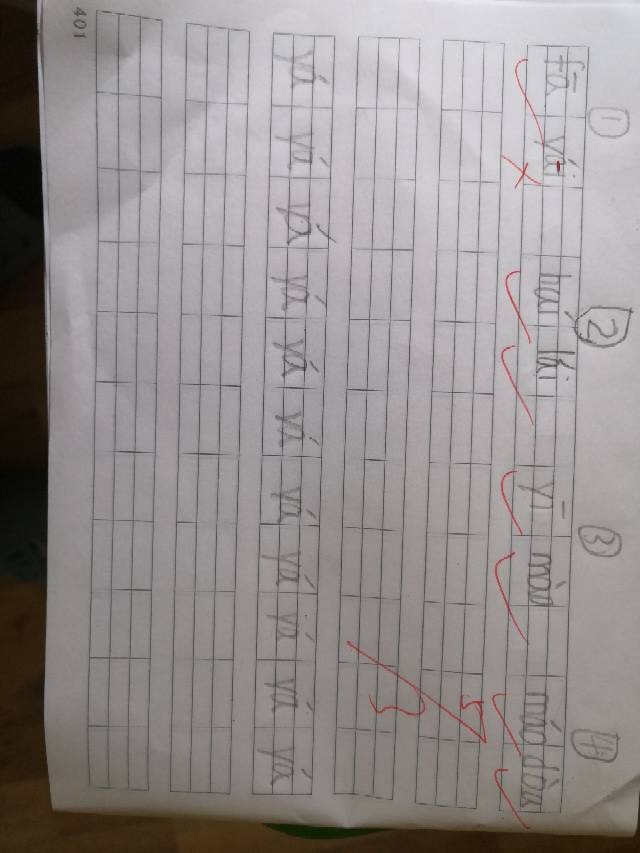 ① ② ③ ④
fā yái hái yī mào máo dòu
yá yá yá yá yá yá yá yá yá yá yá
401